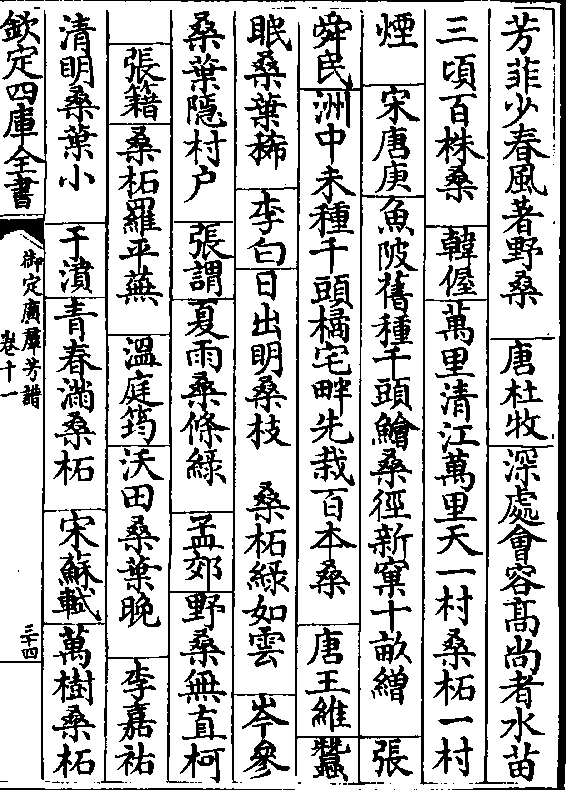 芳菲少春風著野桑　唐杜牧深處會容髙尚者水苗
三頃百株桑　韓偓萬里清江萬里天一村桑柘一村
煙　宋唐庚魚陂舊種千頭鱠桑徑新窠十畝繒　張
舜民洲中未種千頭橘宅畔先栽百本桑　唐王維蠶
眠桑葉稀　李白日出明桑枝　桑柘綠如雲　岑參
桑葉隠村户　張謂夏雨桑條綠　孟郊野桑無直柯
張籍桑柘羅平蕪　溫庭筠沃田桑葉晚　李嘉祐
清明桑葉小　于濆青春滿桑柘　宋蘇軾萬樹桑柘
欽定四庫全書
御定廣羣芳譜
卷十一
三十四